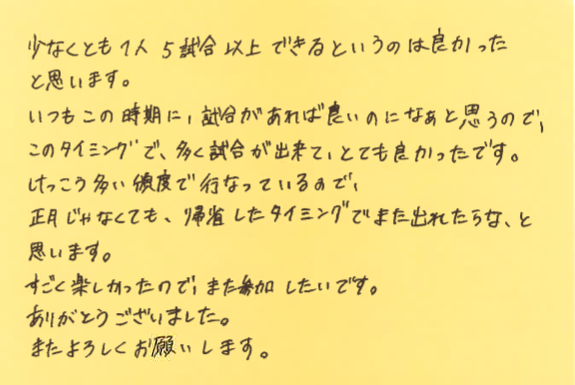 少なくとも1人 5試合以上できるというのは良かった
と思います。
いつもこの時期に、試合があれば良いのになぁと思うので、
このタイミングで、多く試合が出来て、とても良かったです。
けっこう多い頻度で行なっているので、
正月じゃなくても、帰省したタイミングでまた出れたらな、と
思います。
すごく楽しかったので、また参加したいです。
ありがとうございました。
またよろしくお願いします。